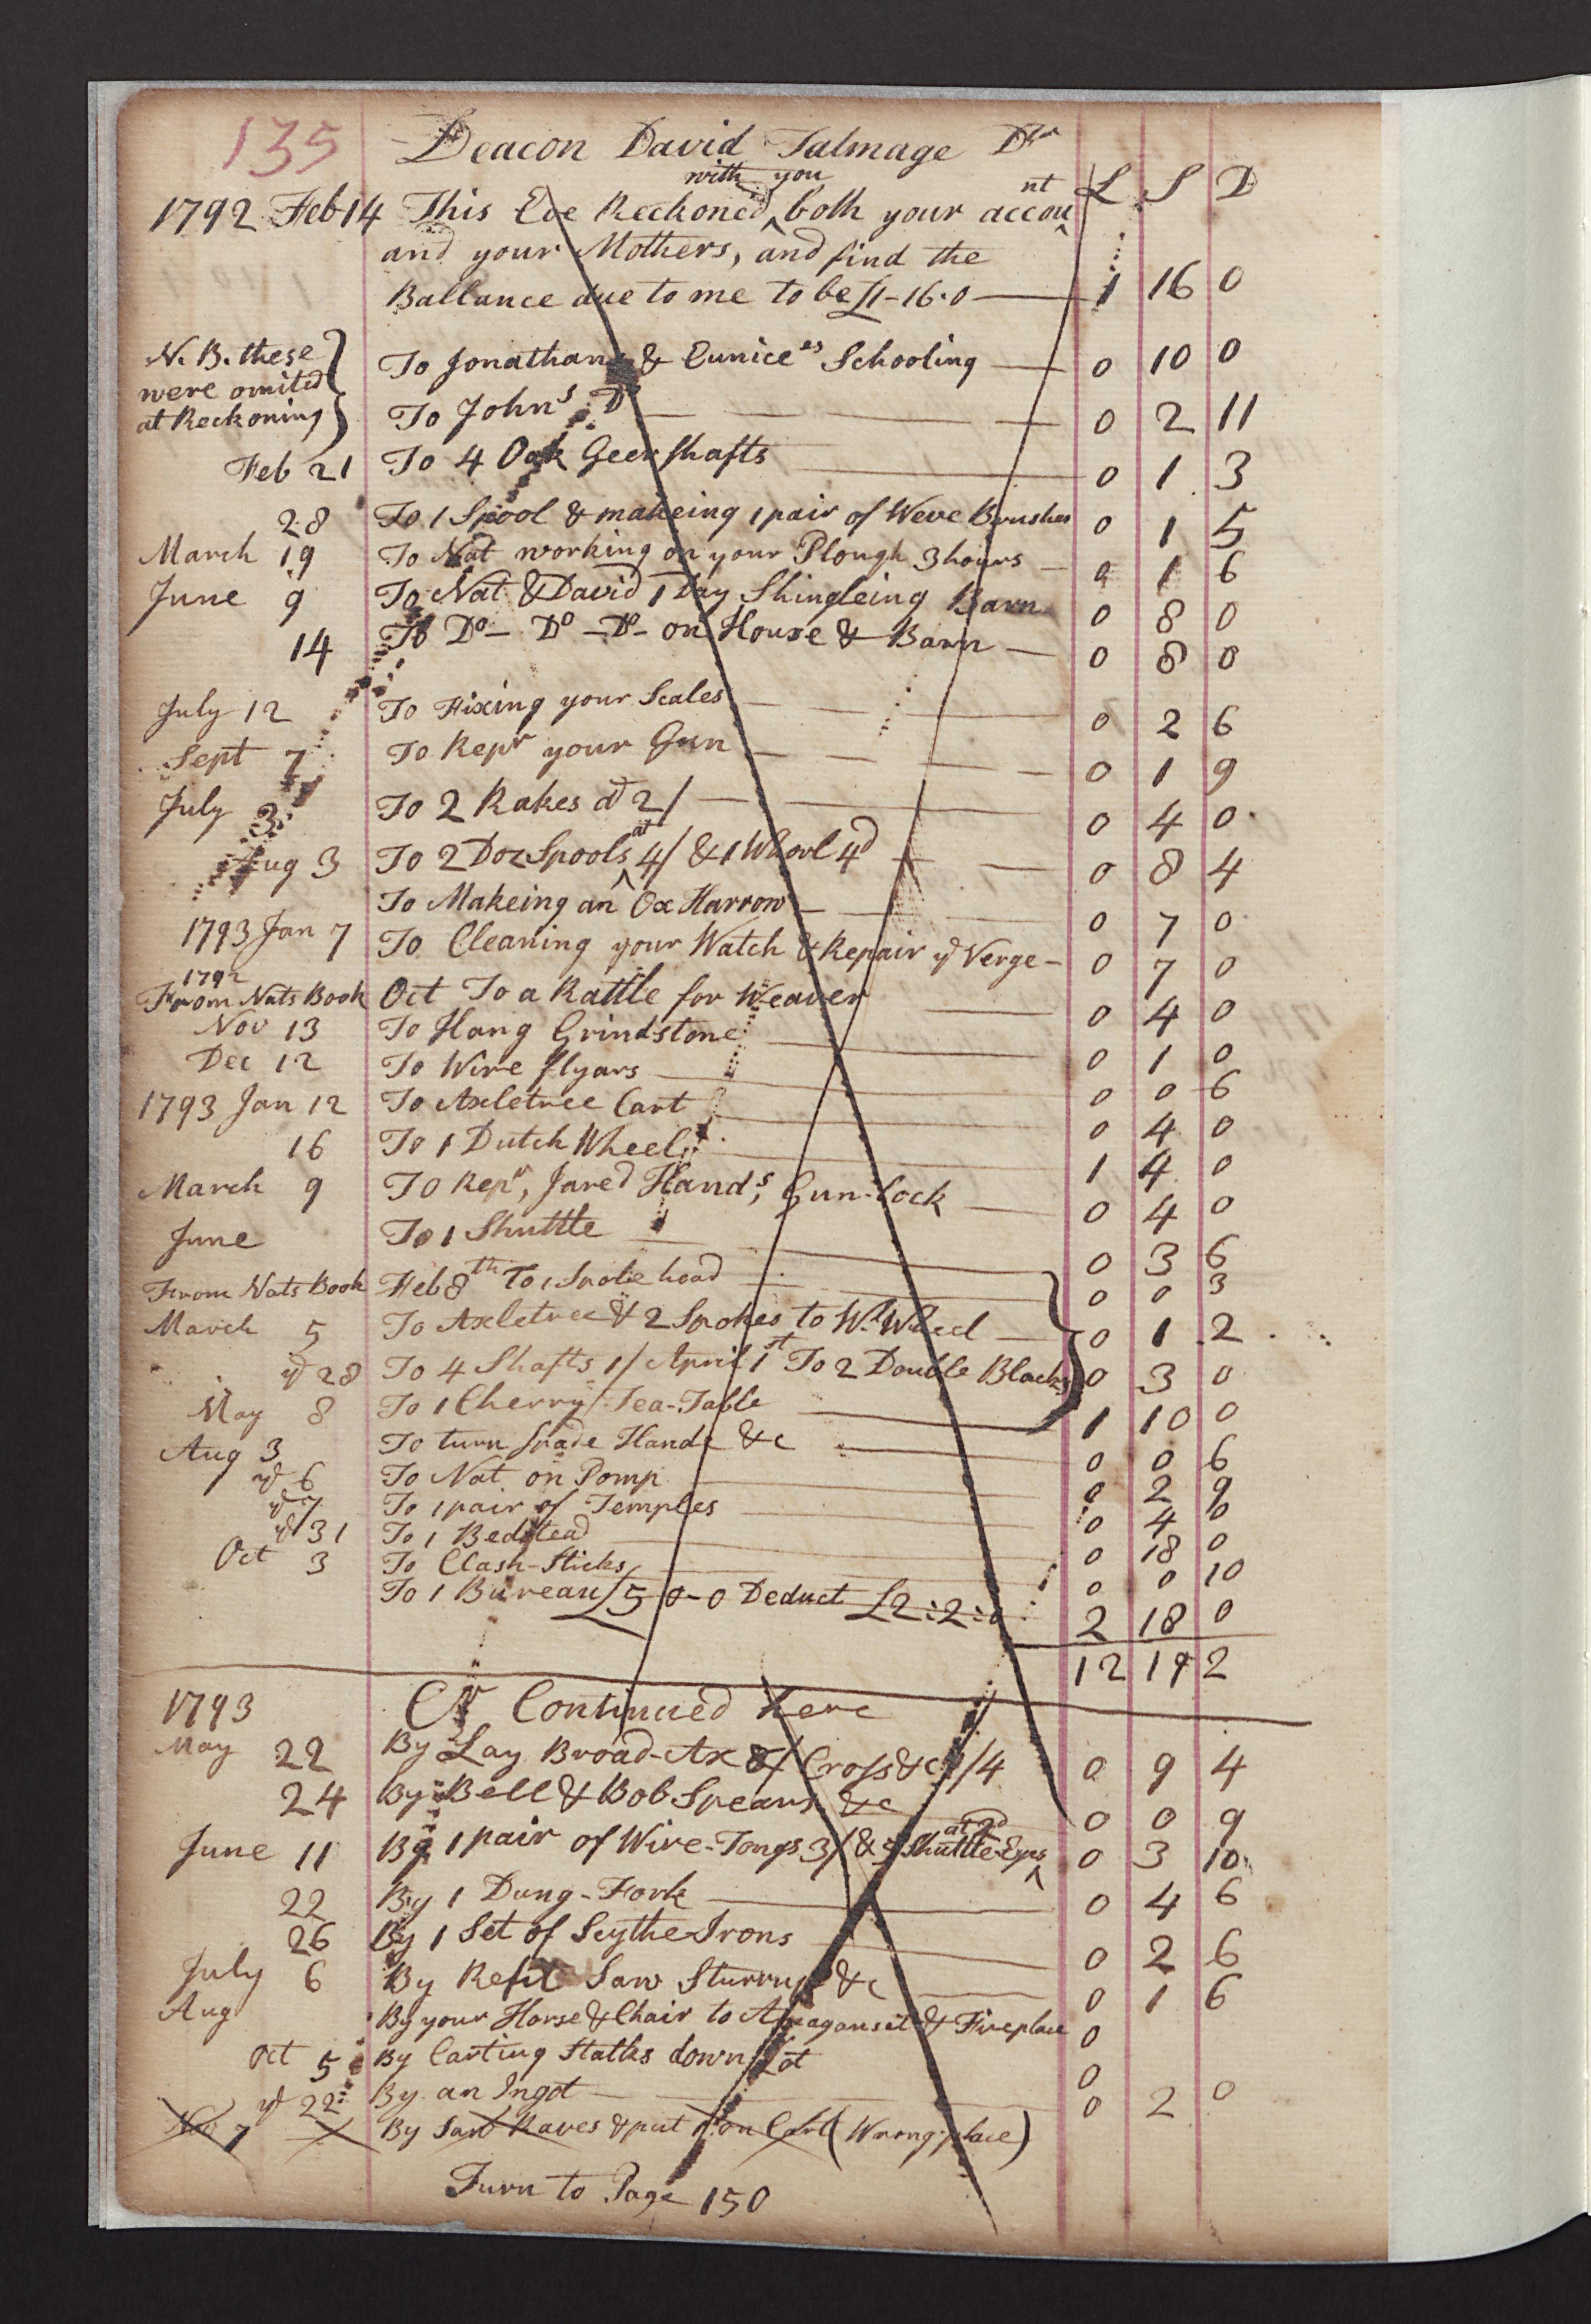 135
Deacon David Talmage Dr
L S D
1792 Feb 14 This Eve Reckoned with you both your account
and your Mothers, and find the
Ballance due to me to be £1-16-0 1 16 0
N. B. these were omited at Reckoning
To Jonathans & Eunice's Schooling 0 10 0
To Johns Do 0 2 11
Feb 21 To 4 Oak Geer shafts 0 1 3
28 To 1 Spool & makeing 1 pair of Weve Brushes 0 1 5
March 19 To Nat working on your Plough 3 hours 0 1 6
June 9 To Nat & David 1 Day Shingleing Barn 0 8 0
14 To Do - Do - Do - on House & Barn 0 8 0
July 12 To Fixing your Scales 0 2 6
Sept 7 To Repr your Gun 0 1 9
July 3 To 2 Rakes at 2/ 0 4 0
Aug 3 To 2 Doz Spools at 4/ & 1 Whorl 4d 0 8 4
To Makeing an Ox Harrow 0 7 0
1793 Jan 7 To Cleaning your Watch & Repair ye Verge 0 7 0
1792
From Nats Book Oct To a Rattle for Weaver 0 4 0
Nov 13 To Hang Grindstone 0 1 0
Dec 12 To Wire flyars 0 0 6
1793 Jan 12 To Axletree Cart 0 4 0
16 To 1 Dutch Wheel 1 4 0
March 9 To Repr, Jared Hand's, Gun-lock 0 4 0
June To 1 Shuttle 0 3 6
From Nats Book Feb 8th To 1 Spole head 0 0 3
March 5 To Axletree & 2 Spokes to Wl Wheel 0 1 2
yd 28 To 4 Shafts 1/ April 1st To 2 Double Blocks 0 3 0
May 8 To 1 Cherry Tea-Table 1 10 0
Aug 3 To turn Spade Handle &c 0 0 6
yd 6 To Nat on Pomp 0 2 9
yd 7 To 1 pair of Temples 0 4 0
yd 31 To 1 Bedstead 0 18 0
Oct 3 To Clash-Sticks 0 0 10
To 1 Bureau £5-0-0 Deduct £2:2:0 2 18 0
12 19 2
1793 Cr Continued here
May 22 By Lay Broad-Ax 8/ Cross &c 1/4 0 9 4
24 By Bell & Bob Spears &c 0 0 9
June 11 By 1 pair of Wire-Tongs 3/ & 5 Shuttle-Eyes at 2d 0 3 10
22 By 1 Dung-Fork 0 4 6
26 By 1 Set of Scythe Irons 0 2 6
July 6 By Refit Saw Sturrup &c 0 1 6
Aug By your Horse & Chair to Amagansit & Fireplace 0
Oct 5 By Carting Stalks down Lot 0
yd 22 By an Ingot 0 2 0
Nov 7 By Saw Raves & put on Cart (Wrong place)
Turn to Page 150